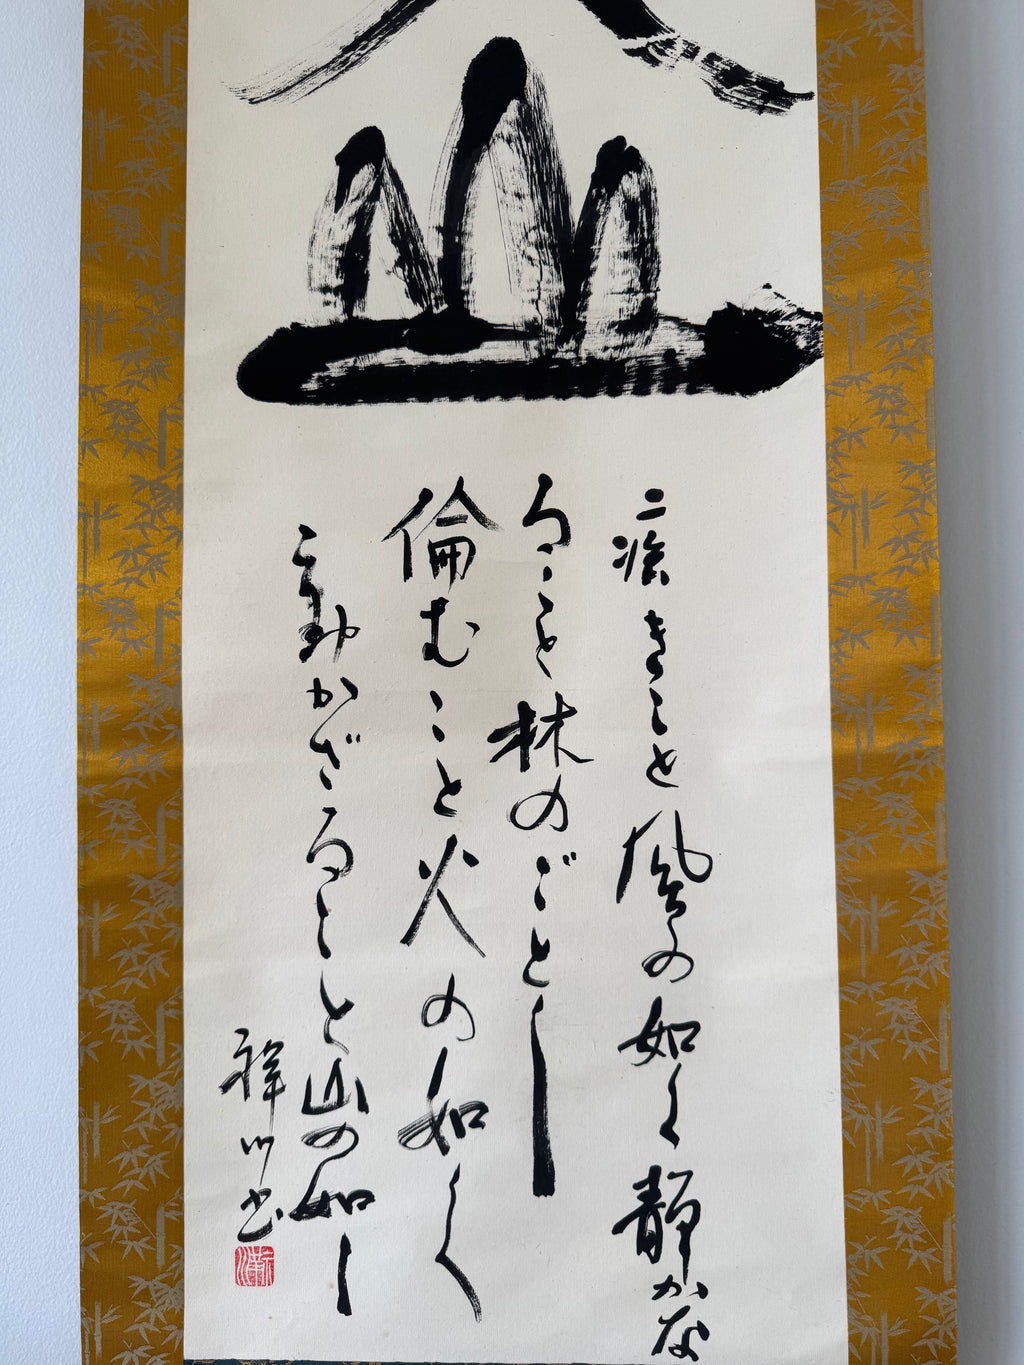 山
疾きこと風の如く静かな
ること林のごとし
倫むこと火の如く
動かざること山の如し
祥川書